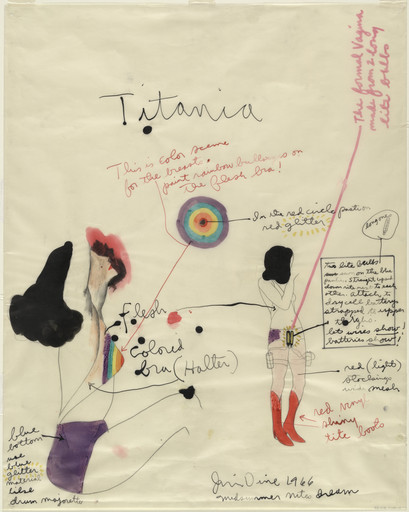 Titania
The formal Vagina
made from 2 long
lite bulbs
This is color scheme
for the breast.
paint rainbow bullseyes on
the flesh bra!
In the red circle position
red glitter
Two lite bulbs
on the blue
Straight up and
down next to each
other. attach to
dry cell battery
strapped to upper
thighs.
let wires show!
batteries show!
Flesh
Colored
bra (Halter)
red (light)
blocking
mesh
red vinyl
shiny
tite boots
blue
bottom
use
blue
glitter
material
like
drum majorette
Jim Dine 1966
midsummer nites dream